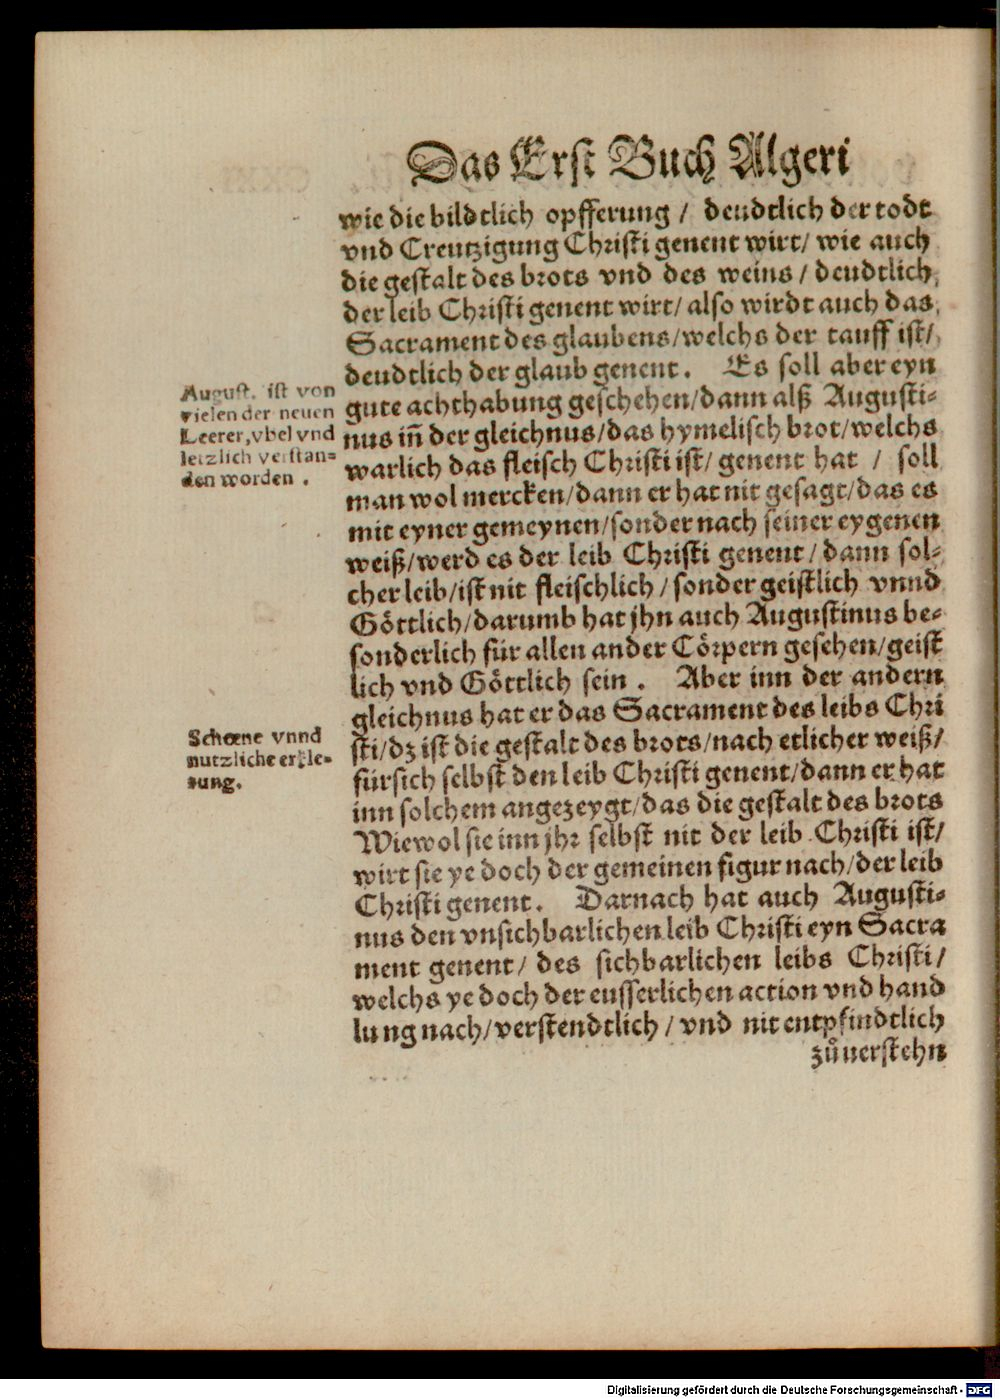 Das Erst Buch Algeri
wie die bildtlich opfferung / deudtlich der todt
vnd Creutzigung Christi genent wirt / wie auch
die gestalt des brots vnd des weins / deudtlich,
der leib Christi genent wirt / also wirdt auch das,
Sacrament des glaubens / welchs der tauff ist /
deudtlich der glaub genent. Es soll aber eyn
gute achthabung geschehen / dann alß Augusti=
nus iñ der gleichnus / das hymelisch brot / welchs
warlich das fleisch Christi ist / genent hat / soll
man wol mercken / dann er hat nit gesagt / das es
mit eyner gemeynen / sonder nach seiner eygenen
weiß / werd es der leib Christi genent / dann sol=
cher leib / ist nit fleischlich / sonder geistlich vnnd
Göttlich / darumb hat jhn auch Augustinus be=
sonderlich für allen ander Cörpern gesehen / geist
lich vnd Göttlich sein. Aber inn der andern
gleichnus hat er das Sacrament des leibs Chri
sti / dz ist die gestalt des brots / nach etlicher weiß /
für sich selbst den leib Christi genent / dann er hat
inn solchem angezeygt / das die gestalt des brots
Wiewol sie inn jhr selbst nit der leib Christi ist /
wirt sie ye doch der gemeinen figur nach / der leib
Christi genent. Darnach hat auch Augusti=
nus den vnsichbarlichen leib Christi eyn Sacra
ment genent / des sichbarlichen leibs Christi /
welchs ye doch der eusserlichen action vnd hand
lung nach / verstendtlich / vnd nit entpfindtlich
zůuerstehn
August. ist von
vielen der neuen
Leerer, vbel vnd
letzlich verstan=
den worden.
Schoene vnnd
nutzliche erkle=
rung.
Digitalisierung gefördert durch die Deutsche Forschungsgemeinschaft - DFG